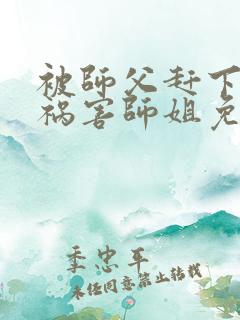 被師父赶下
祸害師姐免
季忠平
未经同意禁止转载